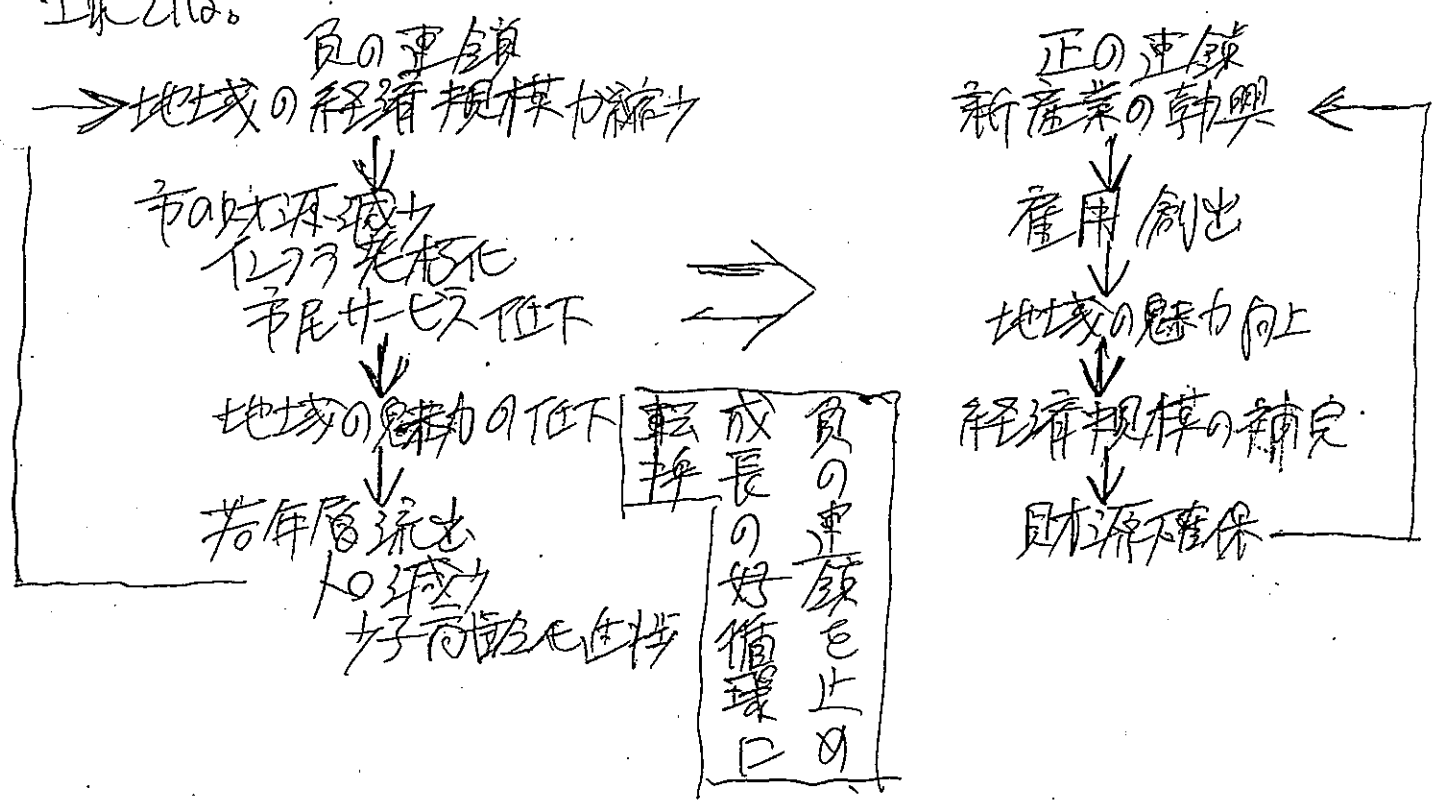 負の連鎖
地域の経済規模が縮少
市の財源減少
インフラ老朽化
市民サービス低下
地域の魅力の低下
若年層流出
人口減少
少子高齢化進捗
負の連鎖を止め
成長の好循環に
転換
正の連鎖
新産業の勃興
雇用創出
地域の魅力向上
経済規模の補完
財源確保